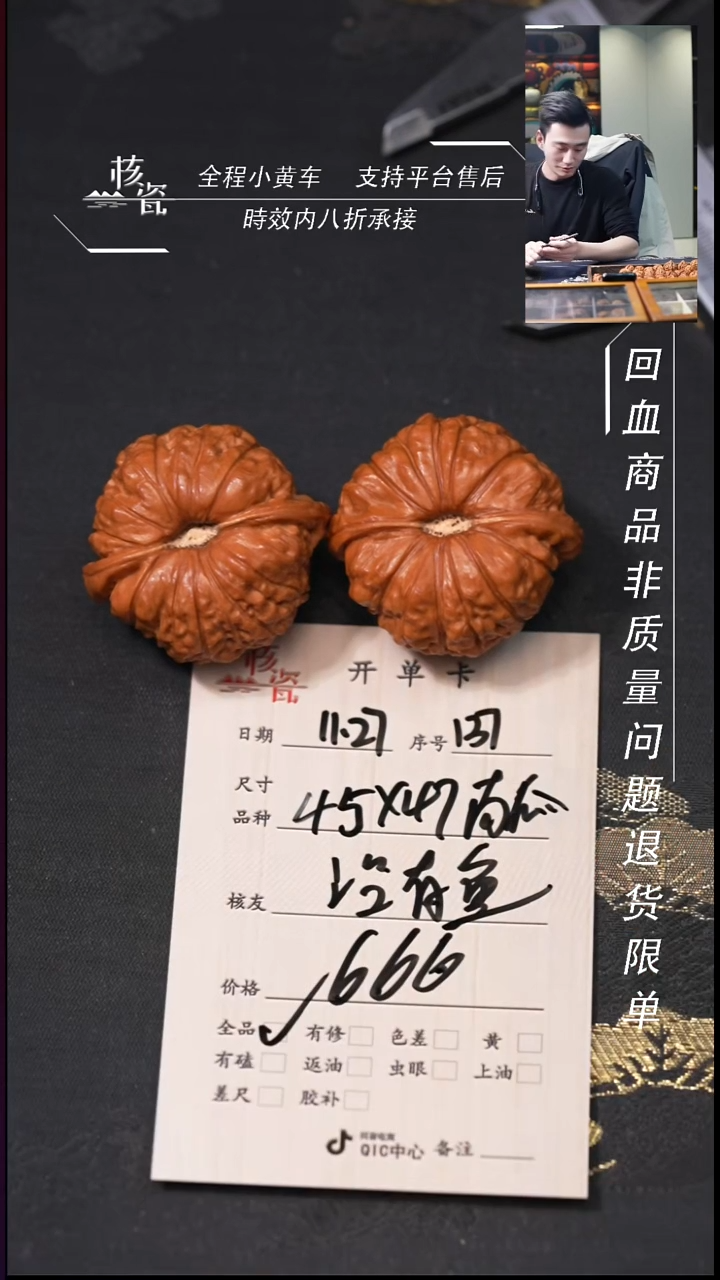 核瓷
全程小黄车 支持平台售后
時效内八折承接
回血商品非质量问题退货限单
核瓷
开单卡
日期 11.27 序号 137
尺寸
品种 45X47南瓜
核友
价格 666
全品 有修 色差 黄
有磕 返油 虫眼 上油
差尺 胶补
抖音电商
QIC中心 备注